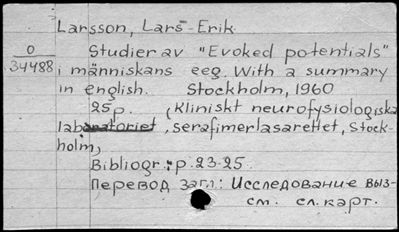 Larsson, Lars-Erik.
O
34488
Studier av "Evoked potentials"
i människans eeg. With a summary
in english. Stockholm, 1960
25p. (Kliniskt neurofysiologiska
laboratoriet, serafimerlasarettet, Stock-
holm,
Bibliogr.: p. 23-25.
Перевод загл.: Исследование выз-
см. сл. карт.